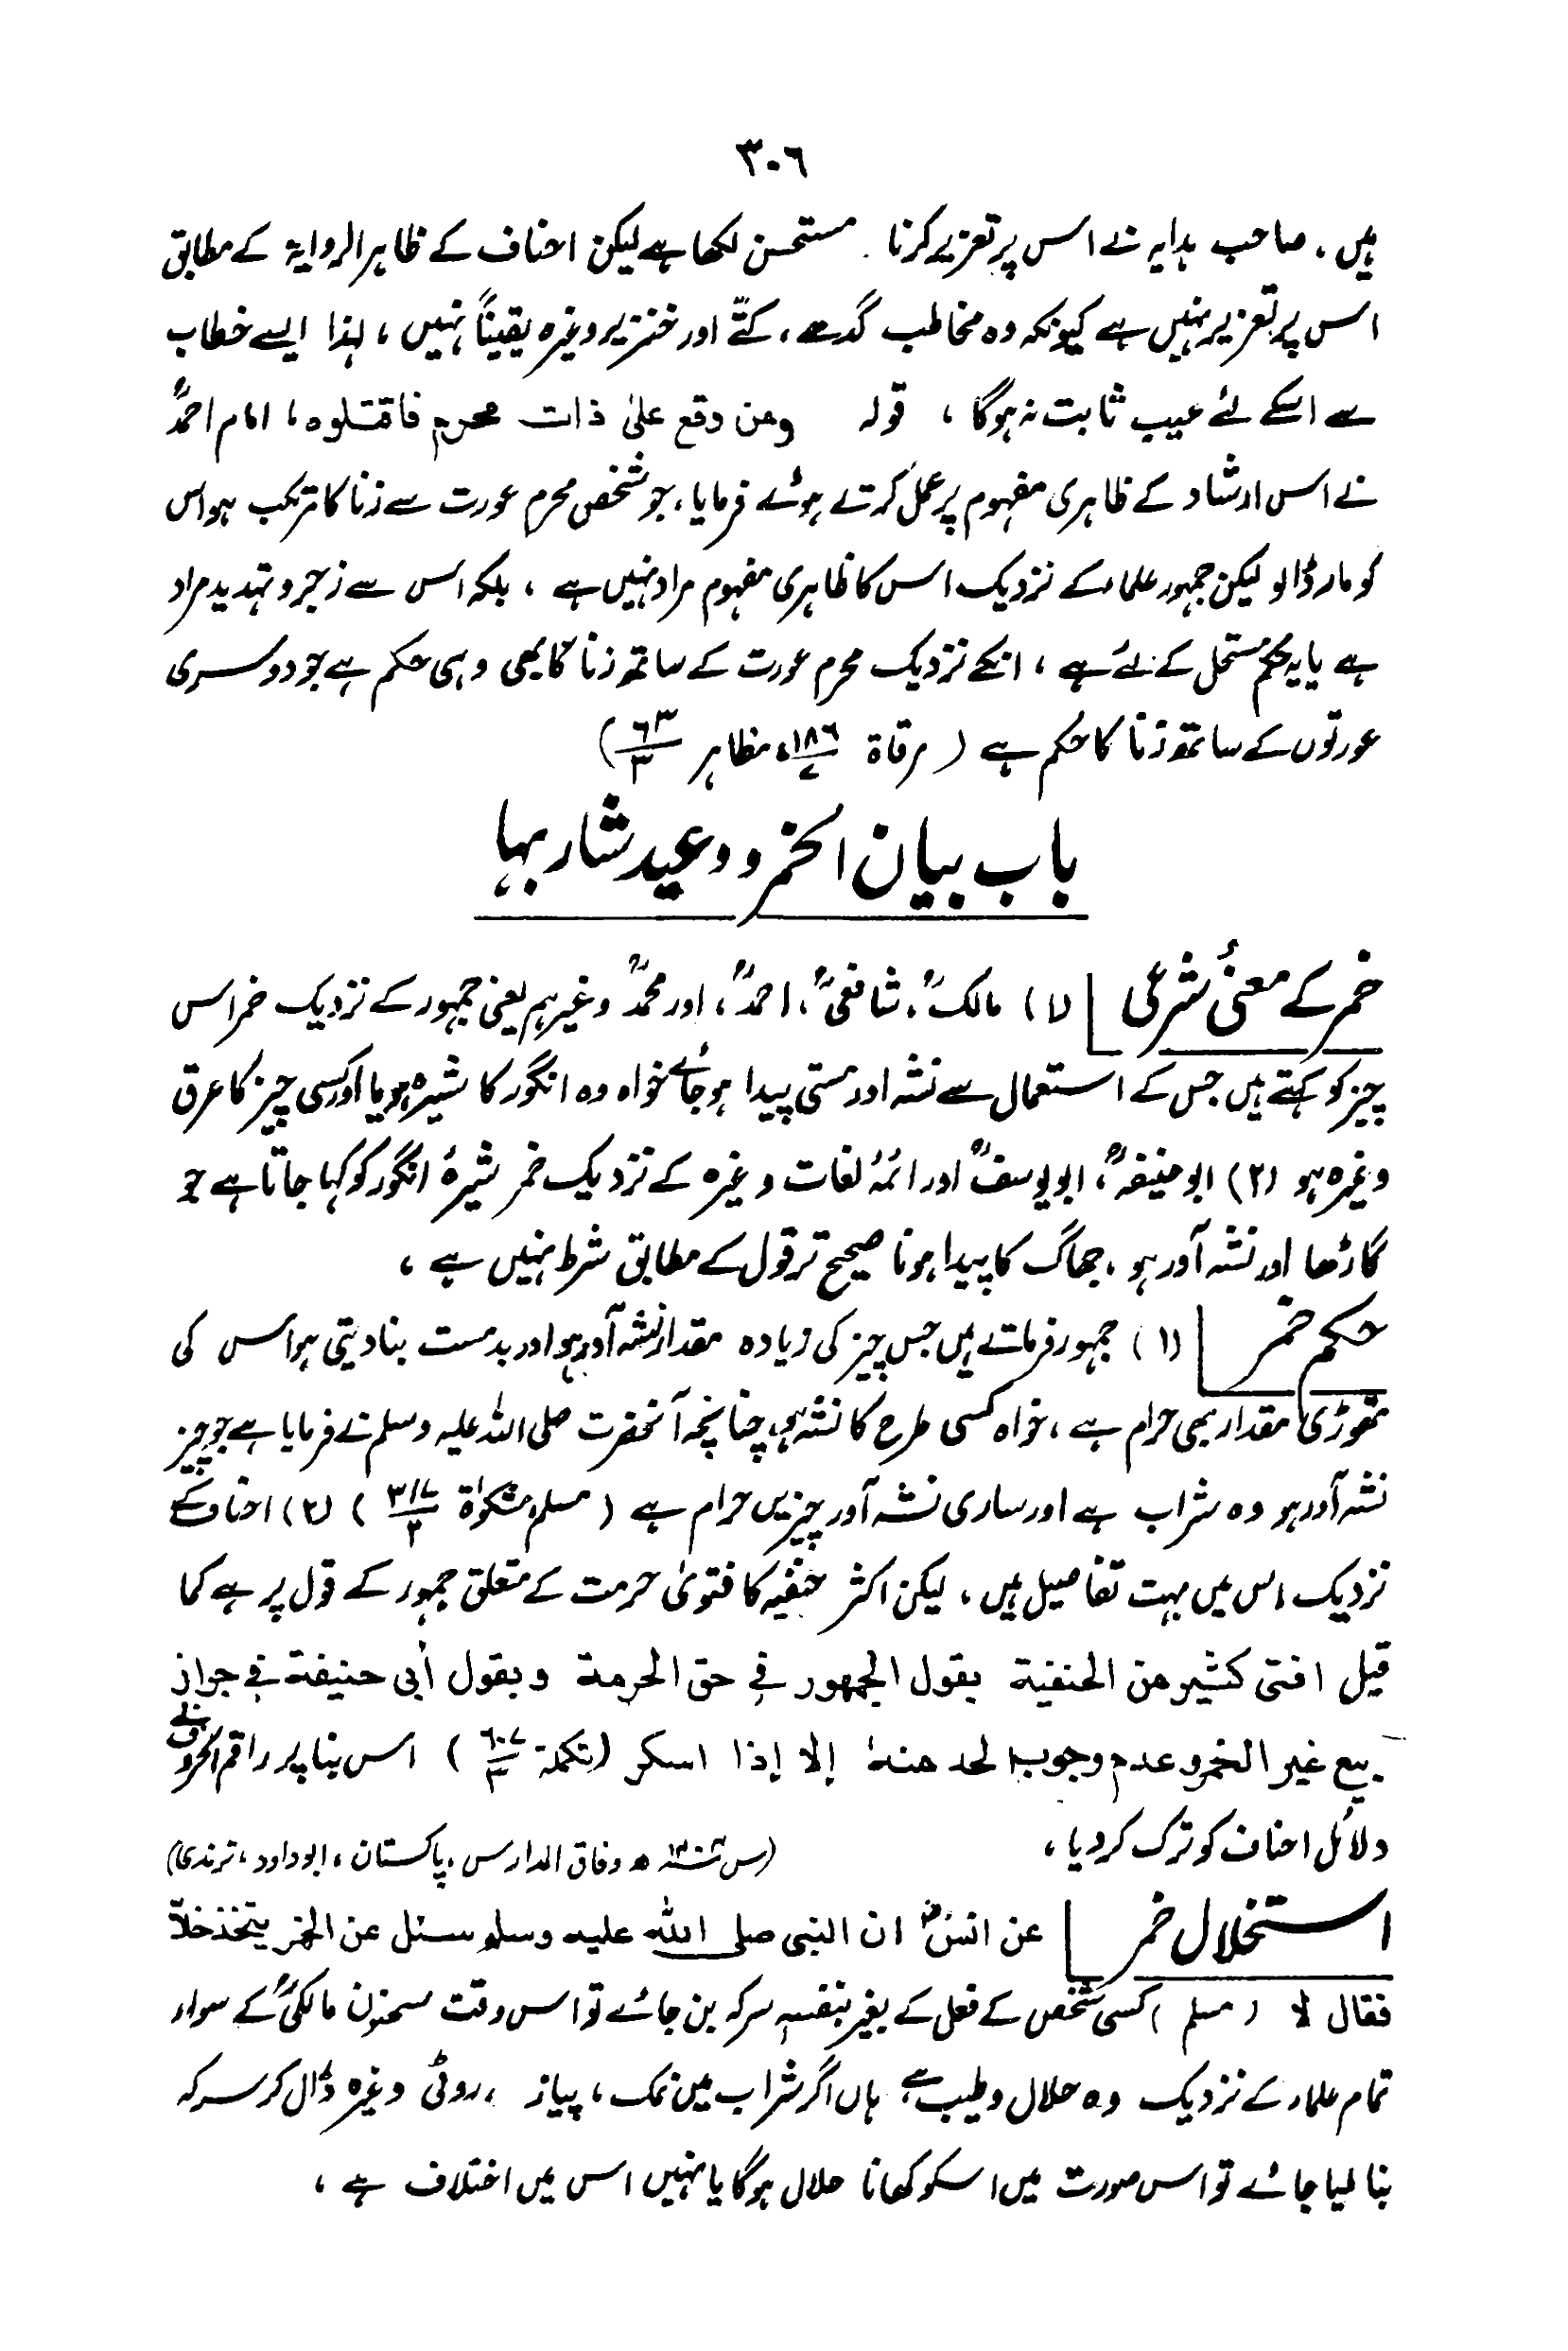 ٣٠٦
ہیں ، صاحب ہدایہ نے اس پر تعزیر کرنا مستحسن لکھا ہے لیکن احناف کے ظاہر الروایۃ کے مطابق
اس پر تعزیر نہیں ہے کیونکہ وہ مخاطب گدھے ، کتّے اور خنزیر وغیرہ یقیناً نہیں ، لہٰذا ایسے خطاب
سے اسکے لئے عیب ثابت نہ ہوگا ، قولہ ومن وقع علیٰ ذات محرم فاقتلوہ ، امام احمدؒ
نے اس ارشاد کے ظاہری مفہوم پر عمل کرتے ہوئے فرمایا ، جو شخص محرم عورت سے زنا کا مرتکب ہو اس
کو مار ڈالو لیکن جمہور علماء کے نزدیک اس کا ظاہری مفہوم مراد نہیں ہے ، بلکہ اس سے زجر و تہدید مراد
ہے یا یہ حکم مستحل کے لئے ہے ، انکے نزدیک محرم عورت کے ساتھ زنا کا بھی وہی حکم ہے جو دوسری
عورتوں کے ساتھ زنا کا حکم ہے ( مرقاة ١٨٦/٧ ، مظاہر ٦٣/٣ )
باب بیان الخمر ووعید شاربہا
خمر کے معنیٔ شرعی (١) مالکؒ ، شافعیؒ ، احمدؒ ، اور محمدؒ وغیرہم یعنی جمہور کے نزدیک خمر اس
چیز کو کہتے ہیں جس کے استعمال سے نشہ اور مستی پیدا ہو جائے خواہ وہ انگور کا شیرہ ہو یا اور کسی چیز کا عرق
وغیرہ ہو (٢) ابو حنیفہؒ ، ابو یوسفؒ اور ائمۂ لغات وغیرہ کے نزدیک خمر شیرۂ انگور کو کہا جاتا ہے جو
گاڑھا اور نشہ آور ہو ، جھاگ کا پیدا ہونا صحیح تر قول کے مطابق شرط نہیں ہے ،
حکم خمر (١) جمہور فرماتے ہیں جس چیز کی زیادہ مقدار نشہ آور ہو اور بدمست بنا دیتی ہو اس کی
تھوڑی مقدار بھی حرام ہے ، خواہ کسی طرح کا نشہ ہو ، چنانچہ آنحضرت صلی اللہ علیہ وسلم نے فرمایا ہے جو چیز
نشہ آور ہو وہ شراب ہے اور ساری نشہ آور چیزیں حرام ہے ( مسلم ، مشکوٰۃ ٣١٧/٢ ) (٢) احناف کے
نزدیک اس میں بہت تفاصیل ہیں ، لیکن اکثر حنفیہ کا فتویٰ حرمت کے متعلق جمہور کے قول پر ہے کما
قیل افتی کثیر من الحنفیة بقول الجمهور فی حق الحرمة وبقول أبی حنیفة فی جواز
بیع غیر الخمر وعدم وجوب الحد منه إلا إذا اسکر (تکملة ٦٠٧/٣ ) اس بنا پر راقم الحروف نے
دلائل احناف کو ترک کر دیا ، (س وفاق المدارس ، پاکستان ، ابوداود ، ترمذی)
استخلال خمر عن انسؓ ان النبی صلی اللہ علیہ وسلم سئل عن الخمر یتخذ خلاً
فقال لا ( مسلم ) کسی شخص کے فعل کے بغیر بنفسہ سرکہ بن جائے تو اس وقت سحنون مالکیؒ کے سواء
تمام علماء کے نزدیک وہ حلال و طیب ہے ، ہاں اگر شراب میں نمک ، پیاز ، روٹی وغیرہ ڈال کر سرکہ
بنا لیا جائے تو اس صورت میں اسکو کھانا حلال ہوگا یا نہیں اس میں اختلاف ہے ،